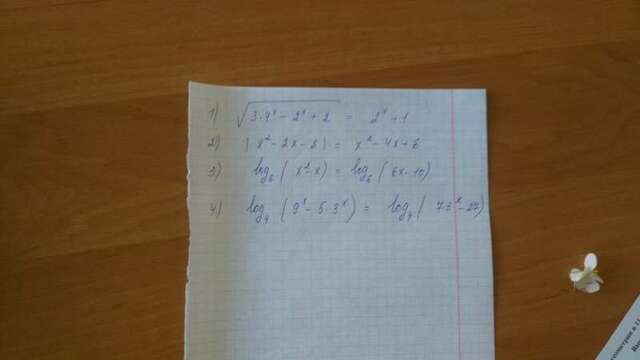 1) √(3·4ˣ - 2ˣ + 2) = 2ˣ + 1
2) |x² - 2x - 2| = x² - 4x + 6
3) log₆(x² - x) = log₆(6x - 10)
4) log₄(9ˣ - 5·3ˣ) = log₄(7·3ˣ - 27)